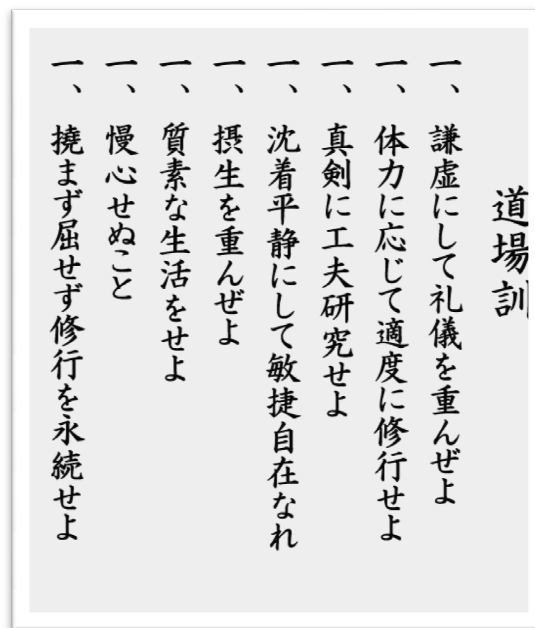 道場訓
一、謙虚にして礼儀を重んぜよ
一、体力に応じて適度に修行せよ
一、真剣に工夫研究せよ
一、沈着平静にして敏捷自在なれ
一、摂生を重んぜよ
一、質素な生活をせよ
一、慢心せぬこと
一、撓まず屈せず修行を永続せよ